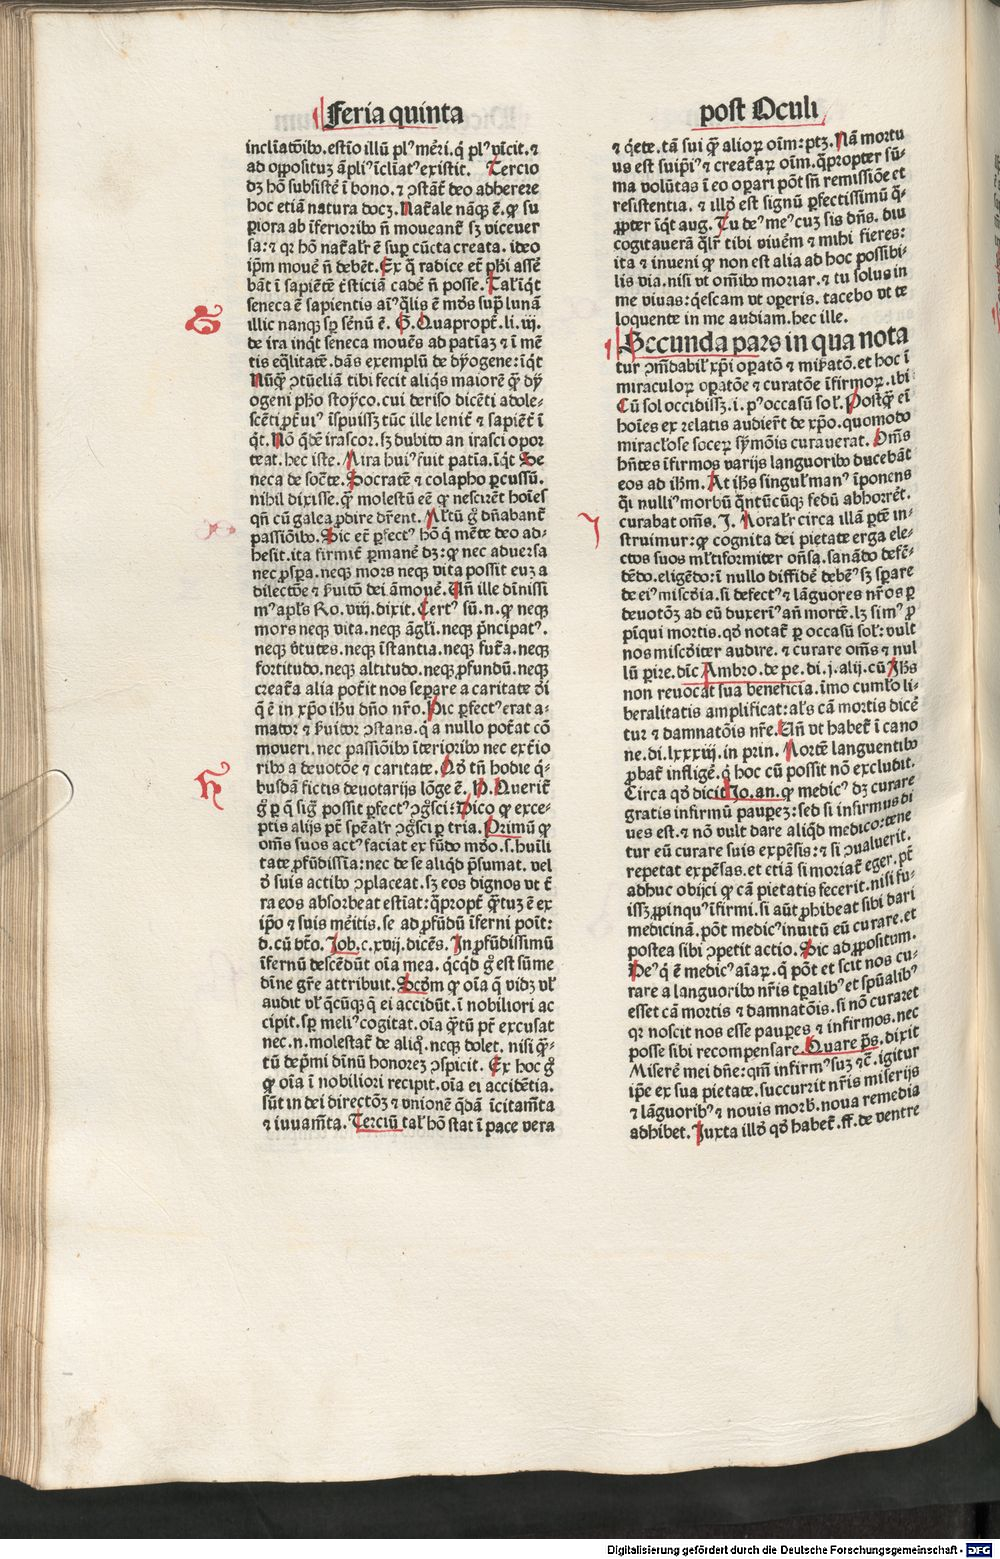 Feria quinta
post Oculi
incliatōibꝰ. est io illū plꝰ mēri. q̄ plꝰ vīcit. ⁊
ad oppositum āpliꝰ īclīatꝰ existit. Tercio
dꝫ hō subsistē ī bono. ⁊ ↄstāt̄ deo adherere
hoc etiā natura docꝫ. Nat̄ale nāqꝫ ē. ꝙ su
ꝑiora ab īferioribꝰ n̄ moueant̄ sꝫ viceuer
sa: ⁊ qꝛ hō nat̄alr̄ ē suꝑ cūcta creata. ideo
ip̄m mouē n̄ debēt. Ex q̄ radice et̄ ph̄i assē
bāt ī sapiētē t̄sticiā cadē n̄ posse. Tal' īqt
seneca ē sapientis aīꝰ q̄lis ē mōs supͣ lunā
illic nanqꝫ sp̄ senū ē. G. Quapropt̄. li. iij.
de ira inqt seneca mouēs ad patiaꝫ ⁊ ī mē
tis eqlitatē. dās exemplū de dyogene: īqt
Nūqͣ ↄtueliā tibi fecit aliqs maiorē qͣ dy
ogeni pho stoyco. cui deriso dicēti adole-
scēti ꝑt̄uiꝰ īspuissꝫ tūc ille lenit̄ ⁊ sapiēt̄ ī
qt. Nō qdē irascor. sꝫ dubito an irasci opor
teat. hec iste. Mira huiꝰ fuit patīa. īqt Se
neca de socͣte. Socratē ⁊ colapho ꝑcussū.
nihil dixisse. qͣ molestū eē ꝙ nescirēt hoīes
qn̄ cū galea ꝓdire dr̄ent. Ml̄tū g̊ dn̄abant̄
passiōibꝰ. Sic et̄ ꝑfectꝰ hō q̄ mēte deo ad-
hesit. ita firmit̄ ꝑmanē dꝫ: ꝙ nec aduersa
nec ꝓspꝑa. neqꝫ mors neqꝫ vita possit euꝫ a
dilectōe ⁊ ẜuitō dei āmouē. Vn̄ ille dīnissi
mꝰ apl̄s Ro. viij. dixit. Certꝰ sū. n. ꝙ neqꝫ
mors neqꝫ vita. neqꝫ āgl̄i. neqꝫ pͥncipatꝰ.
neqꝫ v̄tutes. neqꝫ īstantia. neqꝫ fut̄a. neqꝫ
fortitudo. neqꝫ altitudo. neqꝫ ꝓfundū. neqꝫ
creat̄a alia pot̄it nos separe a caritate d̄i
q̄ ē in xp̄o ih̄u dn̄o nr̄o. Sic ꝑfectꝰ erat a-
mator ⁊ ẜuitor ↄstans. q̄ a nullo pot̄at cō
moueri. nec passiōibꝰ īterioribꝰ nec ext̄io
ribꝰ a deuotōe ⁊ caritate. Qd̄ tn̄ hodie q̄-
busdā fictis deuotarijs lōge ē. H. Querit̄
g̊ ꝑ q̄ sig possit ꝑfectꝰ ↄg̊sci: Dico ꝙ exce-
ptis alijs pt̄ spēalr̄ ↄg̊sci ꝑ tria. Primū ꝙ
om̄s suos actꝰ faciat ex fūdo mō. s. huīli
tate ꝓfūdissīa: nec de se aliqd p̄sumat. vel
d̄ suis actibꝰ ↄplaceat. sꝫ eos dignos vt t̄
ra eos absorbeat estīat: qͣpropt̄ qͣtuꝫ ē ex
ip̄o ⁊ suis mēitis. se ad ꝓfūdū īferni poīt:
d. cū bt̄o. Iob. c. xvij. dicēs. In ꝓfūdissimū
īfernū descēdūt oīa mea. qcqd g̊ est sūme
dīne gr̄e attribuit. Scd̄m ꝙ oīa q̄ vidꝫ vl̄
audit vl̄ q̄cūqꝫ q̄ ei accidūt. ī nobiliori ac
cipit. sꝑ meliꝰ cogitat. oīa qͣtū pt̄ excusat
nec. n. molestat̄ de aliq̄. neqꝫ dolet. nisi qͣ-
tū dep̄mi dīnū honoreꝫ ↄspicit. Ex hoc g̊
ꝙ oīa ī nobiliori recipit. oīa ei accidētia.
sūt in dei directōꝫ ⁊ vnionē qdā īcitam̄ta
⁊ iuuam̄ta. Terciū tal' hō stat ī pace vera
⁊ qͥete. tā sui qͣ alioꝝ oīm: ptꝫ. Nā mortu
us est suip̄iꝰ ⁊ creat̄aꝝ oīm. qͣpropter sū-
ma volūtas ī eo oꝑari pōt sn̄ remissiōe et
resistentia. ⁊ illd̄ est signū ꝑfectissimū q̄-
ꝓpter īqt aug. Tu deꝰ meꝰ cuꝫ sis dn̄s. diu
cogitauerā q̄lr̄ tibi viuēm ⁊ mihi fieres:
ita ⁊ inueni ꝙ non est alia ad hoc possibi-
lis via. nisi vt om̄ibꝰ moriar. ⁊ tu solus in
me viuas: qescam vt oꝑeris. tacebo vt te
loquente in me audiam. hec ille.
Secunda pars in qua nota
tur ↄmēdabil' xp̄i oꝑatō ⁊ mirͣatō. et hoc ī
miraculoꝝ oꝑatōe ⁊ curatōe īfirmoꝝ. ibi
Cū sol occidissꝫ. i. pꝰ occasū sol'. Postqͣ eī
hoīes ex relatis audiert̄ de xp̄o. quomodo
miracl'ose soceꝝ symōis curauerat. Om̄s
hn̄tes īfirmos varijs languoribꝰ ducebāt
eos ad ih̄m. At ih̄s singul' manꝰ īponens
q̄i nulliꝰ morbū qͣntūcūqꝫ fedū abhorrēt.
curabat om̄s. I. Moralr̄ circa illā ꝑtē in-
struimur: ꝙ cognita dei pietate erga ele-
ctos suos ml̄tiformiter on̄sa. sanādo defē-
dēdo. eligēdo: ī nullo diffidē debēꝰ sꝫ sꝑare
de eiꝰ misc̄dia. si defectꝰ ⁊ lāguores nr̄os ꝑ
deuotōꝫ ad eū duxerīꝰ an̄ mortē. lꝫ simꝰ ꝓ
pīqui mortis. qd̄ notat̄ ꝑ occasū sol': vult
nos misc̄diter audire. ⁊ curare om̄s ⁊ nul
lū ꝑire. dīc Ambro. de pe. di. j. alij. cū Ih̄s
non reuocat sua beneficia. īmo cuml'o li-
beralitatis amplificat: al's cā mortis dicē
tur ⁊ damnatōis nr̄e. Vn̄ vt habet̄ ī cano
ne. di. lxxxiij. in prin. Mortē languentibꝰ
ꝓbat̄ infligē. q̄ hoc cū possit nō excludit.
Circa qd̄ dicit Io. an. ꝙ medicꝰ dꝫ curare
gratis infirmū pauperꝫ: sed si infirmus di
ues est. ⁊ nō vult dare aliqd medico: tene
tur eū curare suis expēsis: ⁊ si ↄualuerit.
repetat expēsas. et etiā si moriat̄ eger. pt̄
adhuc obijci ꝙ cā pietatis fecerit. nisi fu-
issꝫ ꝓpinquꝰ īfirmi. si aūt ꝓhibeat sibi dari
medicinā. pōt medicꝰ inuitū eū curare. et
postea sibi ↄpetit actio. Sic ad ꝓpositum.
Deꝰ q̄ ē medicꝰ aīaꝝ. q̄ pōt et scit nos cu-
rare a languoribꝰ nr̄is tꝑalibꝰ et spūalibꝰ
esset cā mortis ⁊ damnatōis. si nō curaret
qꝛ noscit nos esse pauperes ⁊ infirmos. nec
posse sibi recompensare. Quare ps̄. dixit
Miserē mei dn̄e: qm̄ infirmꝰ suꝫ ⁊c̄. igitur
ip̄e ex sua pietate. succurrit nr̄is miserijs
⁊ lāguoribꝰ ⁊ nouis morb. noua remedia
adhibet. Juxta illd̄ qd̄ habet̄. ff. de ventre
G
H
I
Digitalisierung gefördert durch die Deutsche Forschungsgemeinschaft - DFG